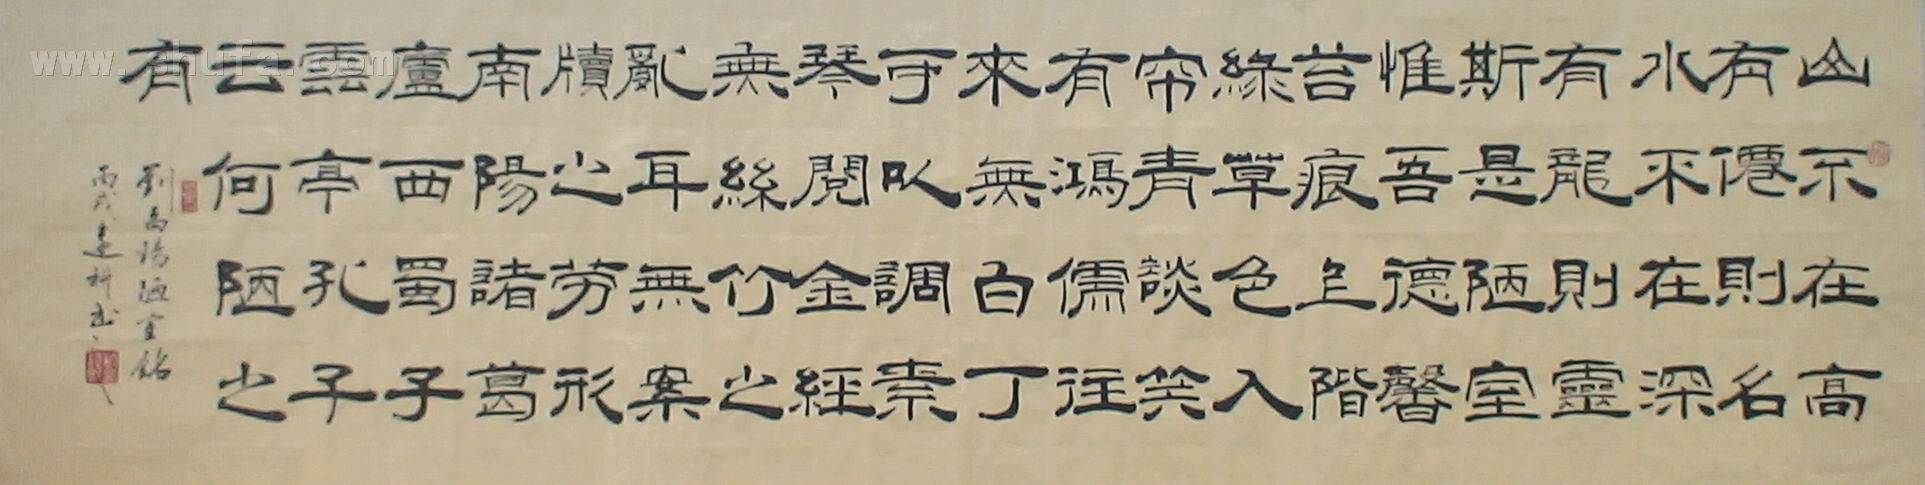 山不在高
有僊則名
水不在深
有龍則靈
斯是陋室
惟吾德馨
苔痕上階
綠草色入
帘青談笑
有鴻儒往
來無白丁
可以調素
琴閱金經
無絲竹之
亂耳無案
牘之勞形
南陽諸葛
廬西蜀子
雲亭孔子
云何陋之
有
劉禹錫陋室銘
丙戌建新书
www.shufa.com